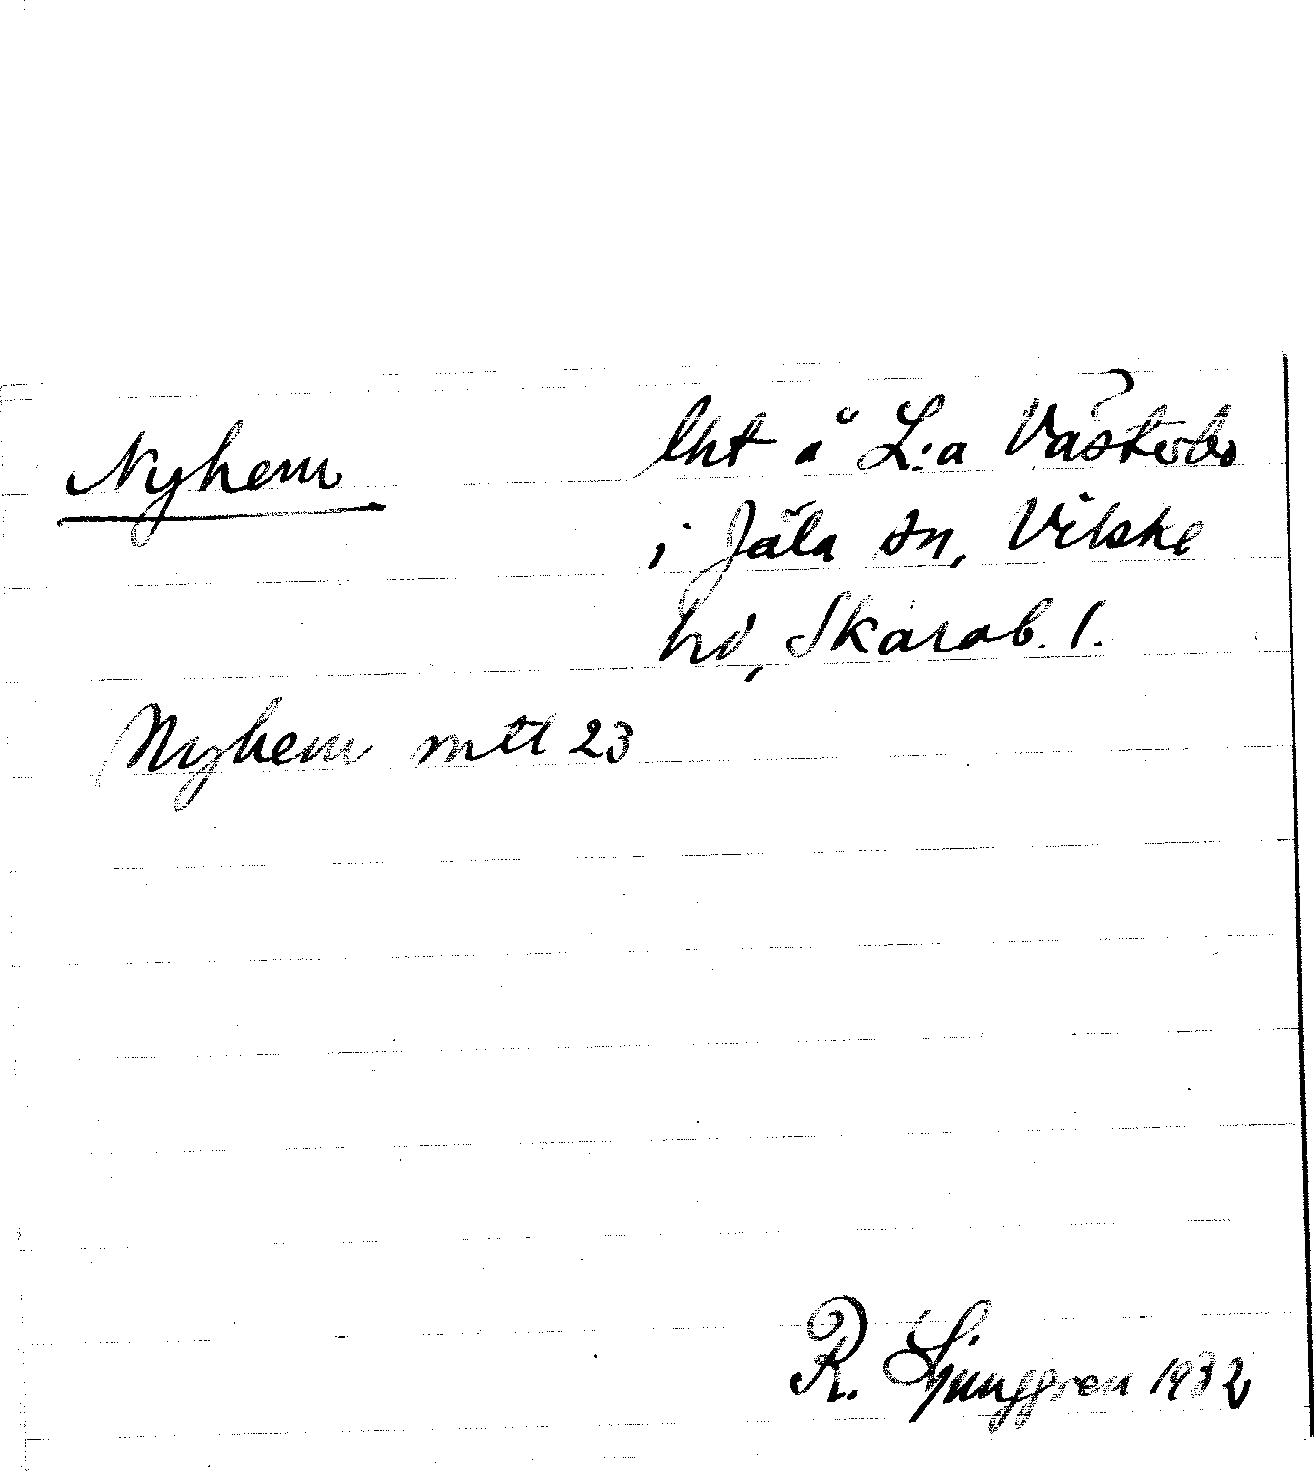 Nyhem
lht å L:a Västerbo
i Jäla sn, Vilske
hd, Skarab. l.
Nyhem mtl 23
R. Ljunggren 1932